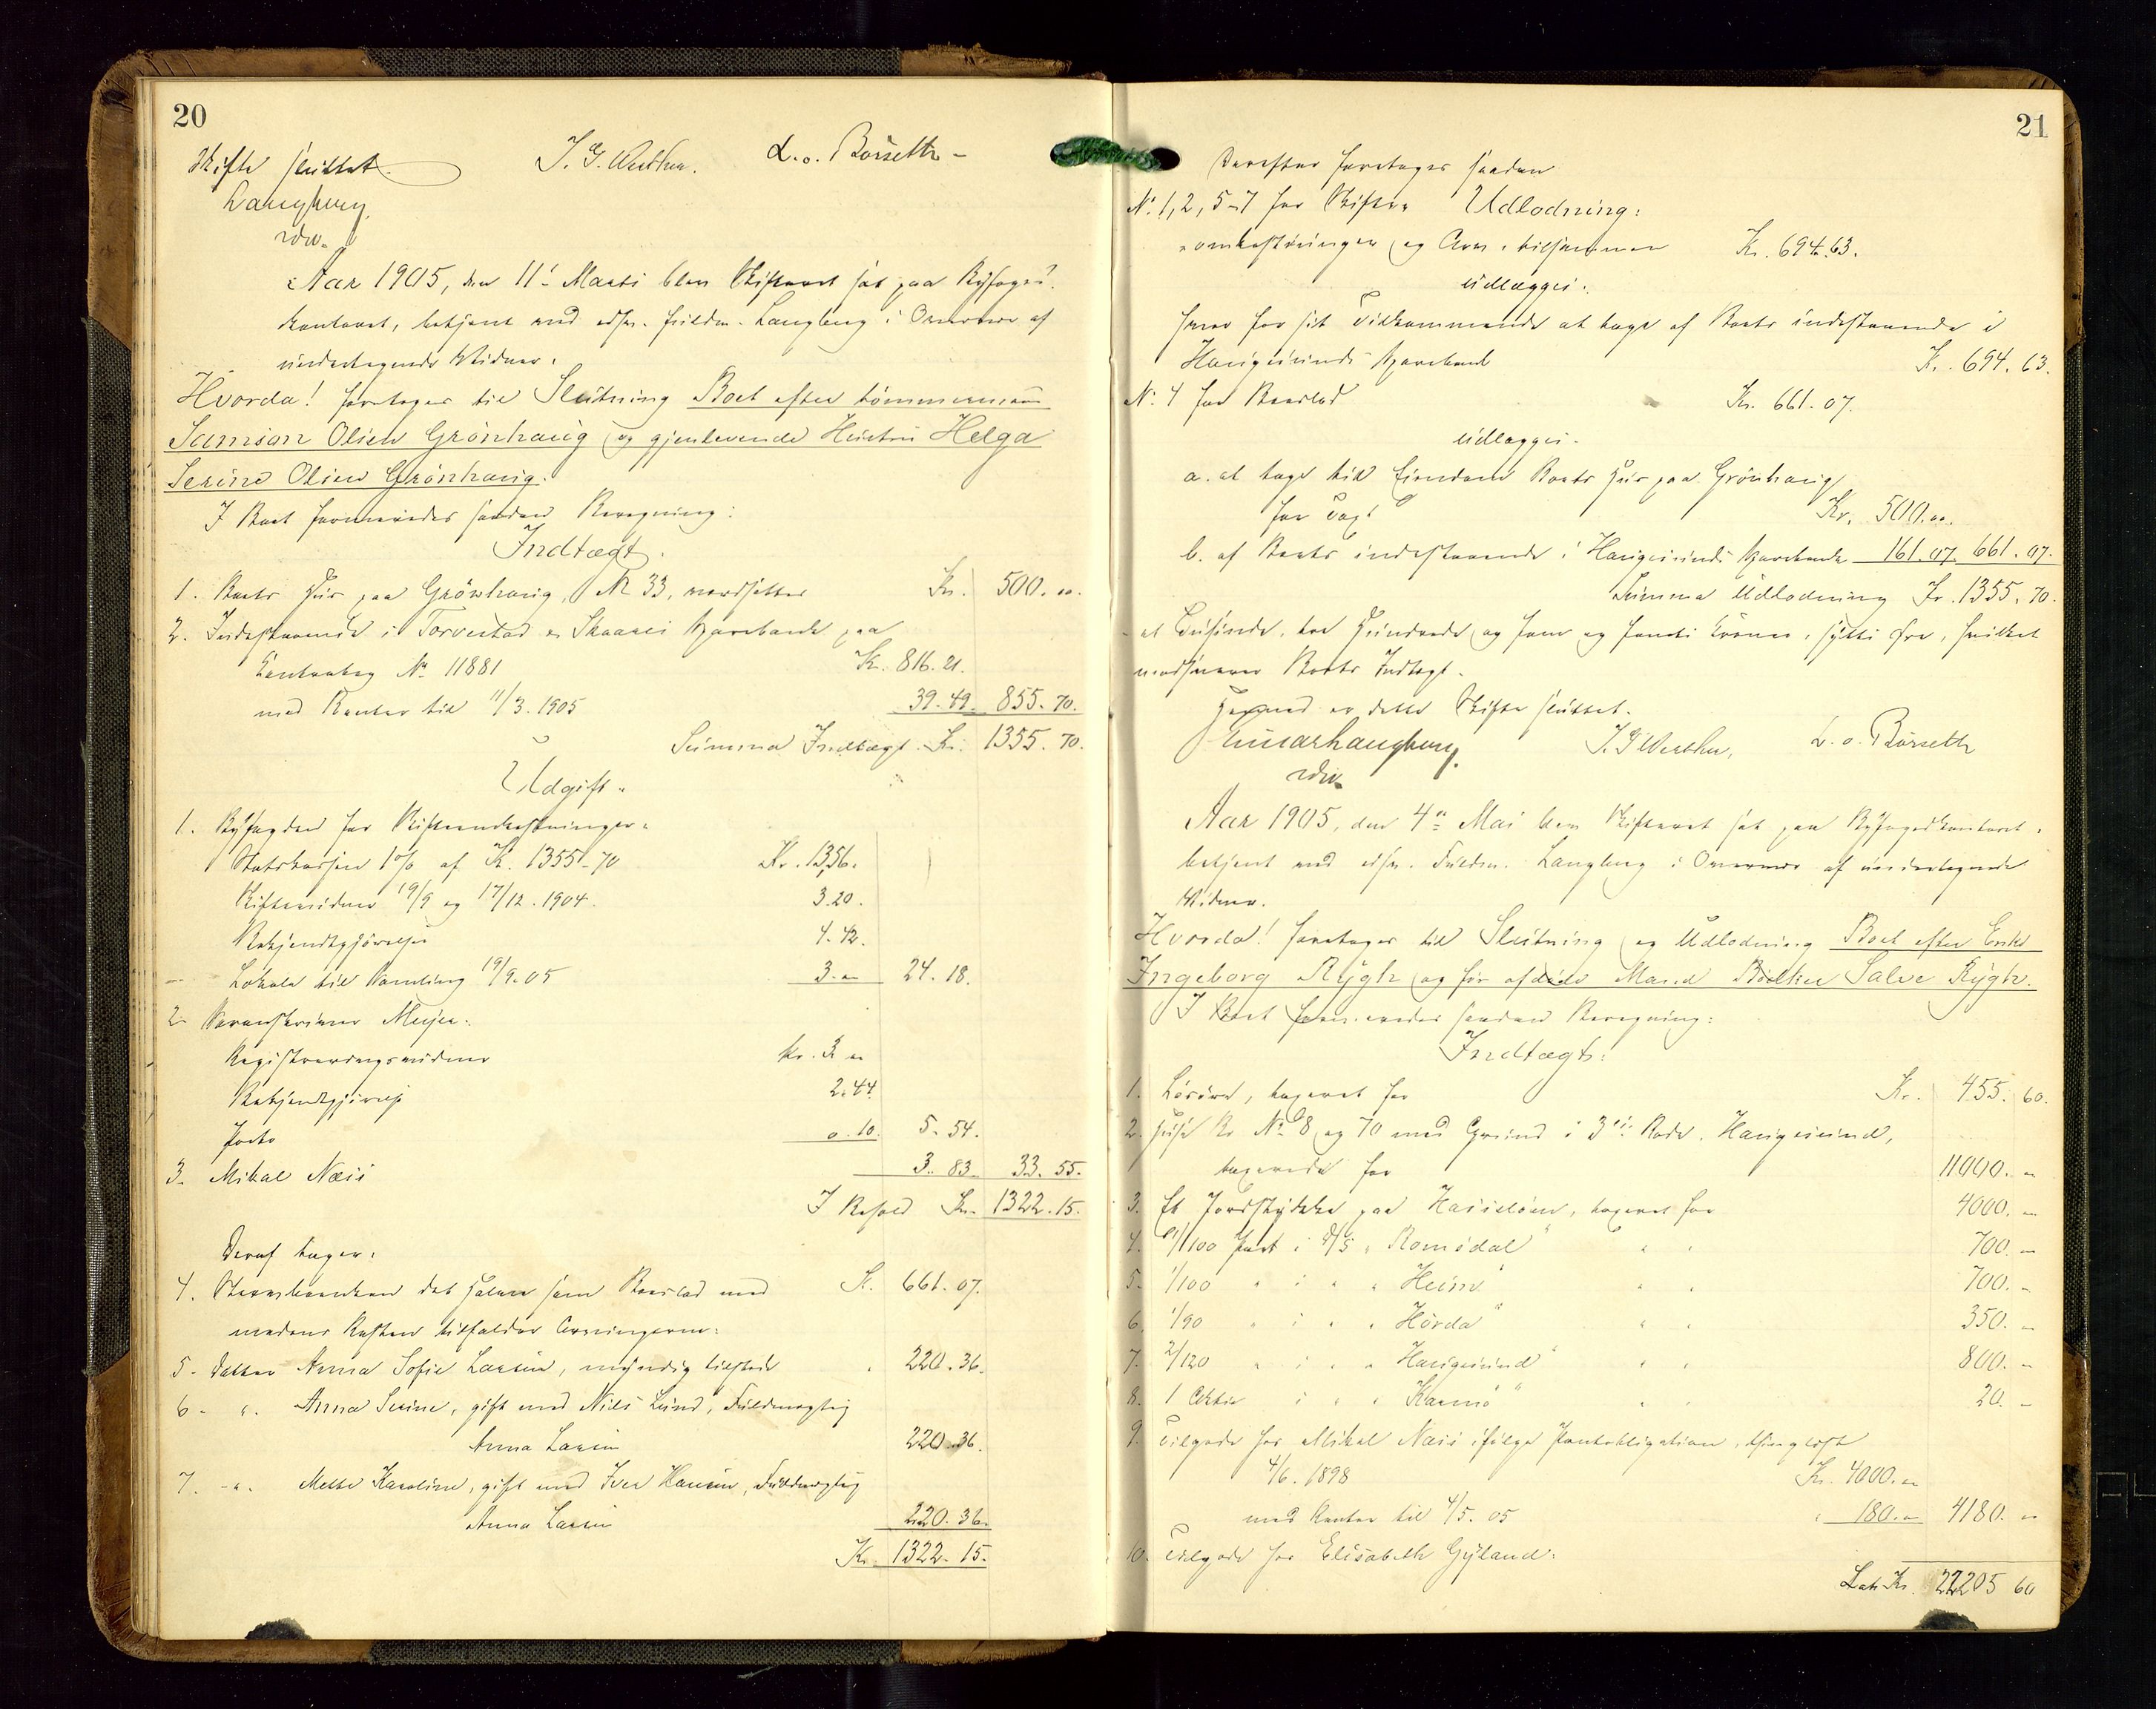 20
Skifte sluttet. J. G. Werthu. L. o. Börseth -
Langberg.
cdw.
Aar 1905, den 11' Marti blev Skifteret sat paa Byfoged-
kontoret, betjent med edsv. fuldm. Langberg i Overvær af
undertegnede Vidner.
Hvorda! foretoges til Slutning Boet efter tömmermand
Samson Olsen Grönhaug og gjenlevende Hustru Helga
Serine Olsen Grönhaug.
I Boet formeredes saadan Beregning:
Indtægt.
1. Boets Hus paa Grönhaug, N 33, nordsætter Kr. 500. oo.
2. Indestaaende i Torvestad & Skaare Sparebank paa
Contrabog No 11881 Kr. 816. 21.
med Renter til 11/3. 1905 39. 49. 855. 70.
Summa Indtægt Kr. 1355. 70.
Udgift.
1. Byfogden for Skifteomkostninger.
Statskassen 1% af Kr. 1355-70 Kr. 13,56.
Skiftevidner 19/9 og 17/12. 1904. 3.20.
Bekjendtgjörelse 4.42.
Lokale til Samling 19/9.05 3. oo 24. 18.
2. Sorenskriver Meyer.
Registreringsvidner Kr. 3 oo
Bekjendtgjörelse 2.44.
Porto 0.10. 5. 54.
3. Mikal Næss 3. 83. 33. 55.
I Behold Kr. 1322. 15.
Deraf tager:
4. Stervboenken det halve som Boeslod med K. 661. 07.
medens Resten tilfalder Arvingerne:
5. datter Anna Sofie Larsen, myndig tilstede 220. 36.
6. " Anna Serine, gift med Nils Lund, Fuldmægtig
Anna Larsen 220. 36.
7. " Mette Karoline, gift med Iver Hansen, Fuldmægtig
Anna Larsen 220. 36.
Kr. 1322. 15.
21
Derefter foretoges saadan
No 1, 2, 5-7 for Skifte- Udlodning:
omkostninger og Arv, tilsammen Kr. 694.63.
udlægges.
hver for sit Vedkommende at tage af Boets indestaaende i
Haugesunds Sparebank Kr. 694. 63.
No 4 for Boeslod Kr. 661. 07.
udlægges.
a. at tage til Eiendom Boets Hus paa Grönhaug
for Taxt Kr. 500. oo.
b. af Boets indestaaende i Haugesunds Sparebank 161. 07. 661. 07.
Summa Udlodning Kr. 1355. 70.
- et Tusinde, tre Hundrede og fem og femti Kroner, sytti Öre, hvilket
modsvarer Boets Indtægt.
Hermed er dette Skifte sluttet.
Einar Langberg. J. G. Werthu. L. o. Börseth
cdw.
Aar 1905, den 4de Mai blev Skifteret sat paa Byfogedkontoret,
betjent med edsv. Fuldm. Langberg i Overvær af undertegnede
Vidner.
Hvorda! foretoges til Slutning og Udlodning Boet efter Enke
Ingeborg Rygh og för afdöde Mand Bödker Salve Rygh.
I Boet formeredes saadan Beregning:
Indtægt:
1. Lösöre, taxeret for Kr. 455. 60.
2. Huse Br No 8 og 70 med Grund i 3die Rode, Haugesund,
taxerede for 11000. oo
3. Et Jordstykke paa Hasselöen, taxeret for 4000. oo
4. 1/100 Part i D/S "Romsdal" " " 700. -
5. 1/100 " i " "Heim" " " 700. -
6. 1/90 " i " "Hörda" " " 350. -
7. 2/120 " i " "Haugesund" " " 800. -
8. 1 Aktie i " "Karmö" " " 20. -
9. Tilgode hos Mikal Næss ifölge Pantobligation, thinglyst
4/6. 1898 Kr. 4000. oo
med Renter til 4/5. 05 " 180. oo 4180. oo
10. Tilgode hos Elisabeth Gyland:
Lat. Kr. 22205 60